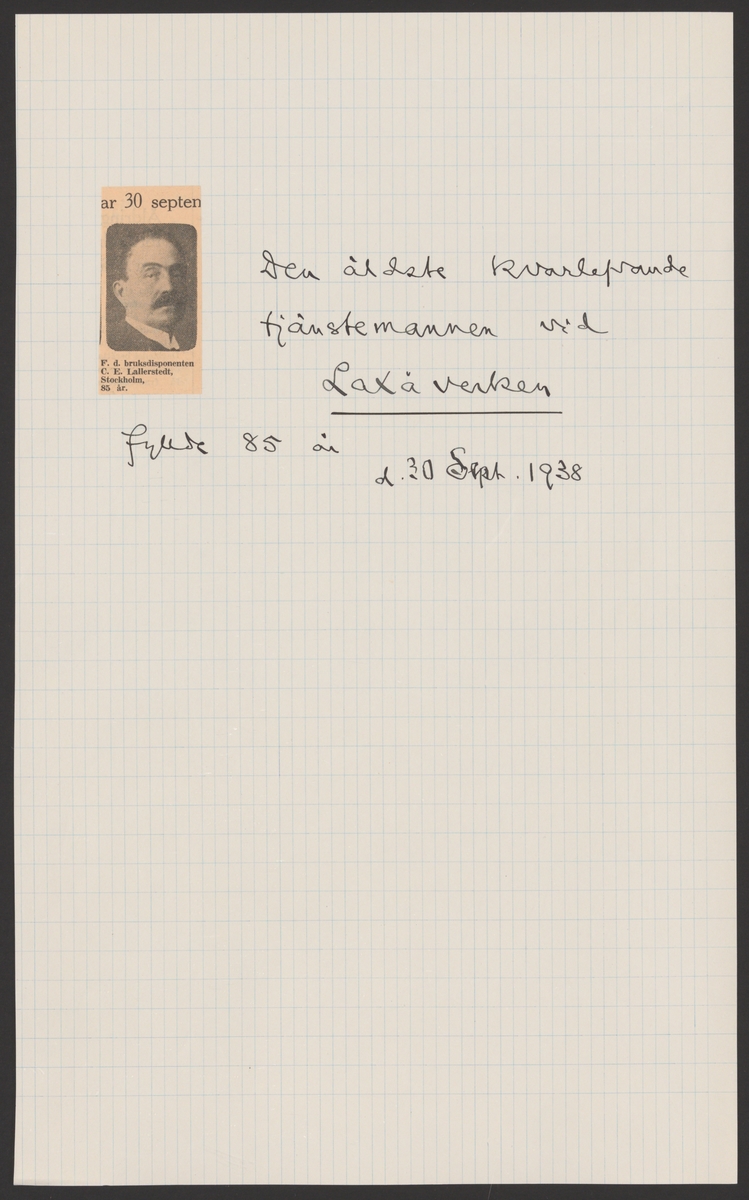 ar 30 septen
F. d. bruksdisponenten
C. E. Lallerstedt,
Stockholm,
85 år.
Den äldste kvarlefvande
tjänstemannen vid
Laxå verken
fyllde 85 år
d. 30 Sept. 1938